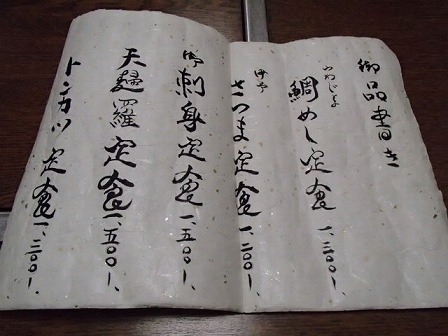 御品書き
うわじま
鯛めし定食 一、三〇〇、
伊予
さつま定食 一、二〇〇、
御刺身定食 一、五〇〇、
天麺羅定食 一、五〇〇、
トンカツ定食 一、二〇〇、